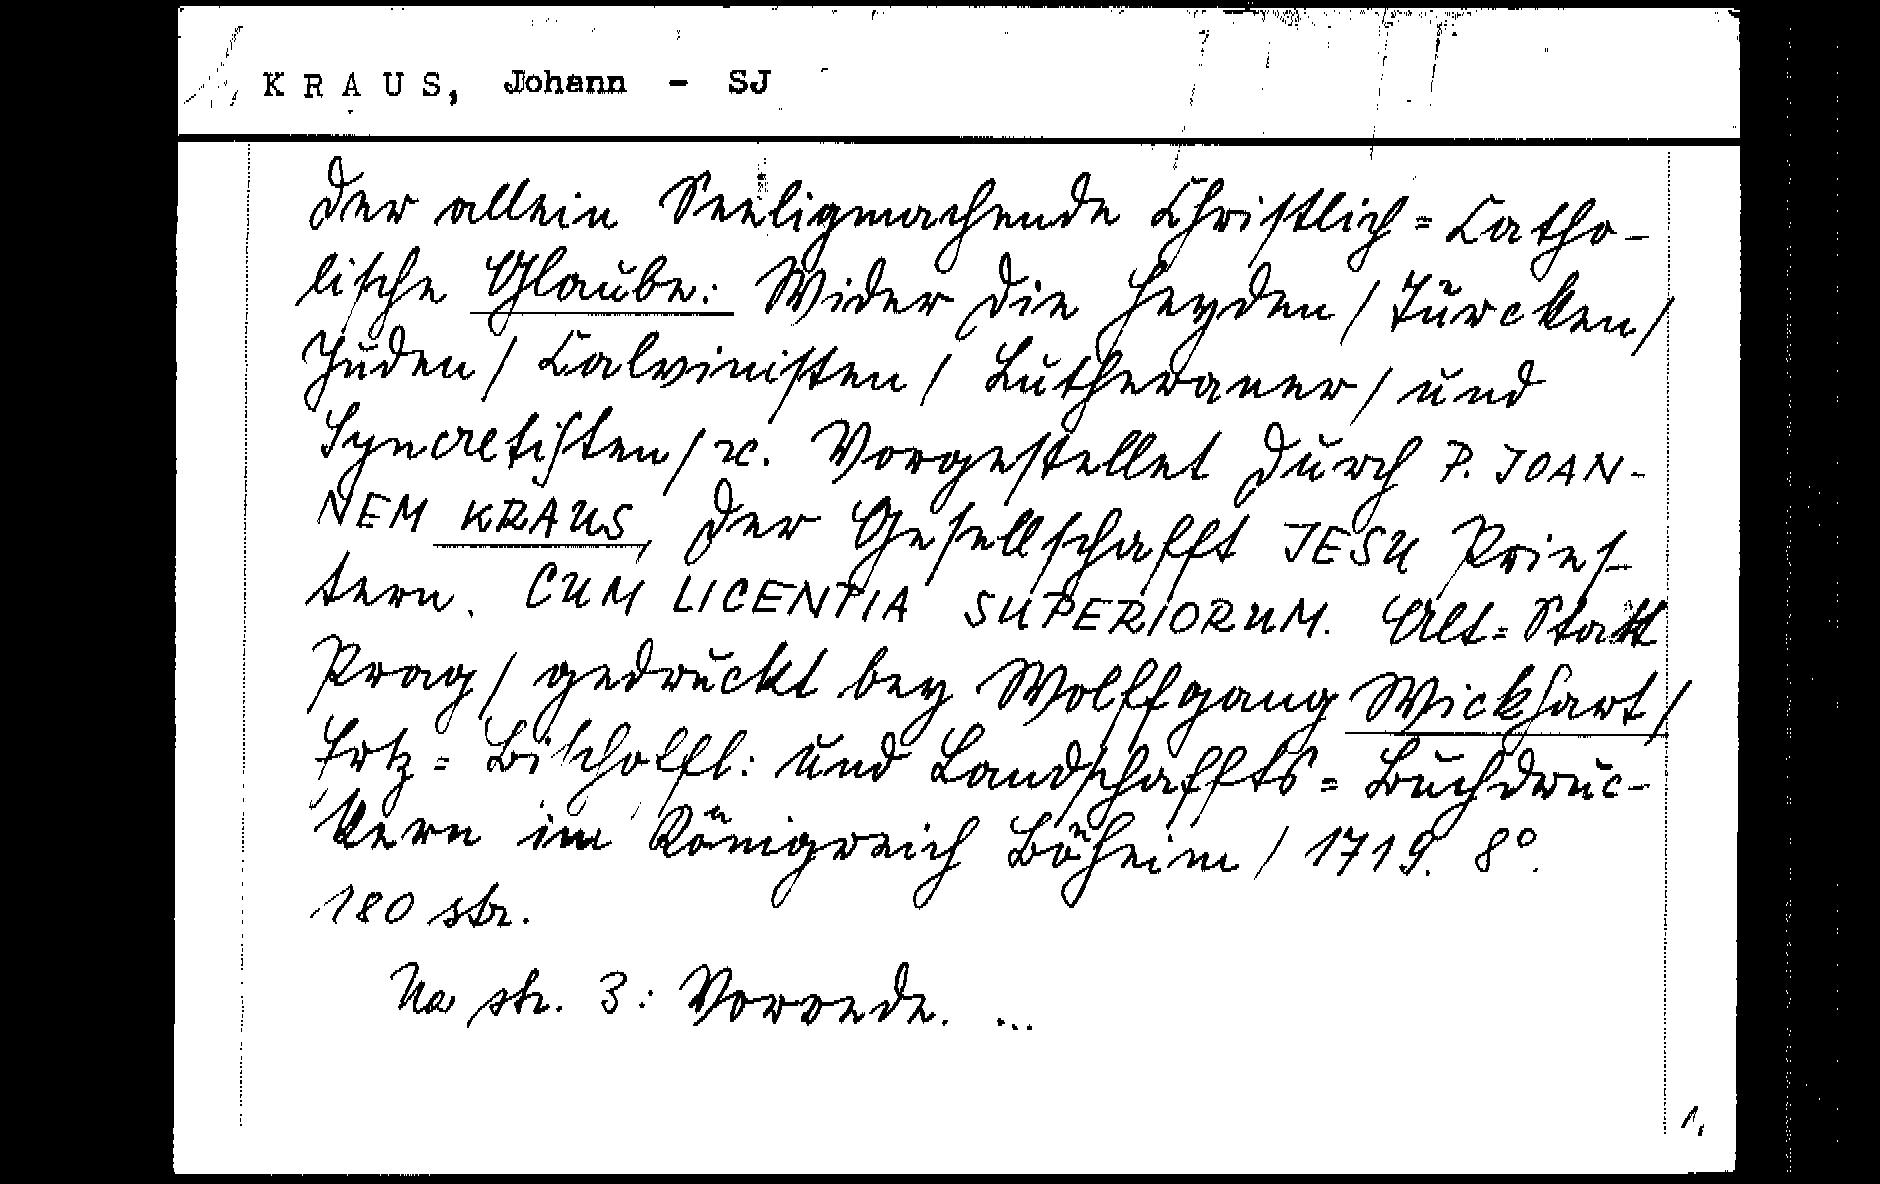 KRAUS, Johann - SJ
Der allein Seeligmachende Christlich=Catho-
lische Glaube: Wider die Heyden / Türcken /
Juden / Calvinisten / Lutheraner / und
Syncretisten / ꝛc. Vorgestellet durch P. JOAN-
NEM KRAUS, der Gesellschafft JESU Pries-
tern. CUM LICENTIA SUPERIORUM. Alt=Statt
Prag / gedruckt bey Wolffgang Wickhart /
Ertz=Bischoffl: und Landschaffts=Buchdruc-
kern im Königreich Böheim / 1719. 8°.
180 str.
Na str. 3: Vorrede. ...
1,